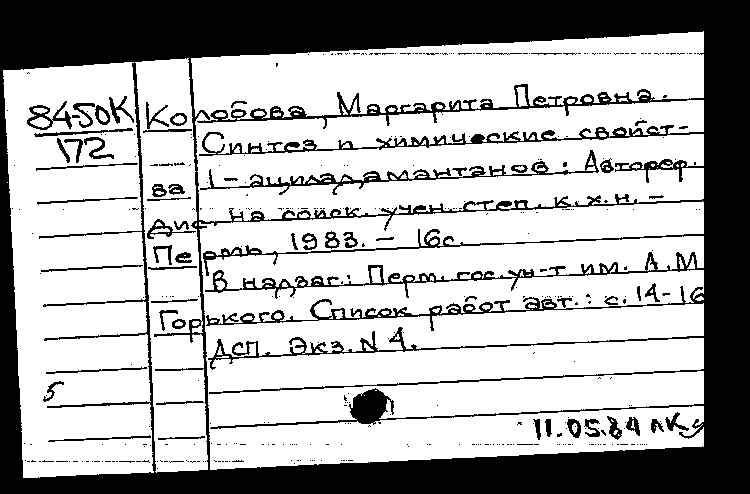 84-50К Колобова, Маргарита Петровна.
172 Синтез и химические свойст-
ва 1-ациладамантанов: Автореф.
дис. на соиск. учен. степ. к.х.н. –
Пермь, 1983. – 16с.
В надзаг.: Перм. гос. ун-т им. А.М
Горького. Список работ авт.: с. 14-16
ДСП. Экз. N 4.
5
11.05.84